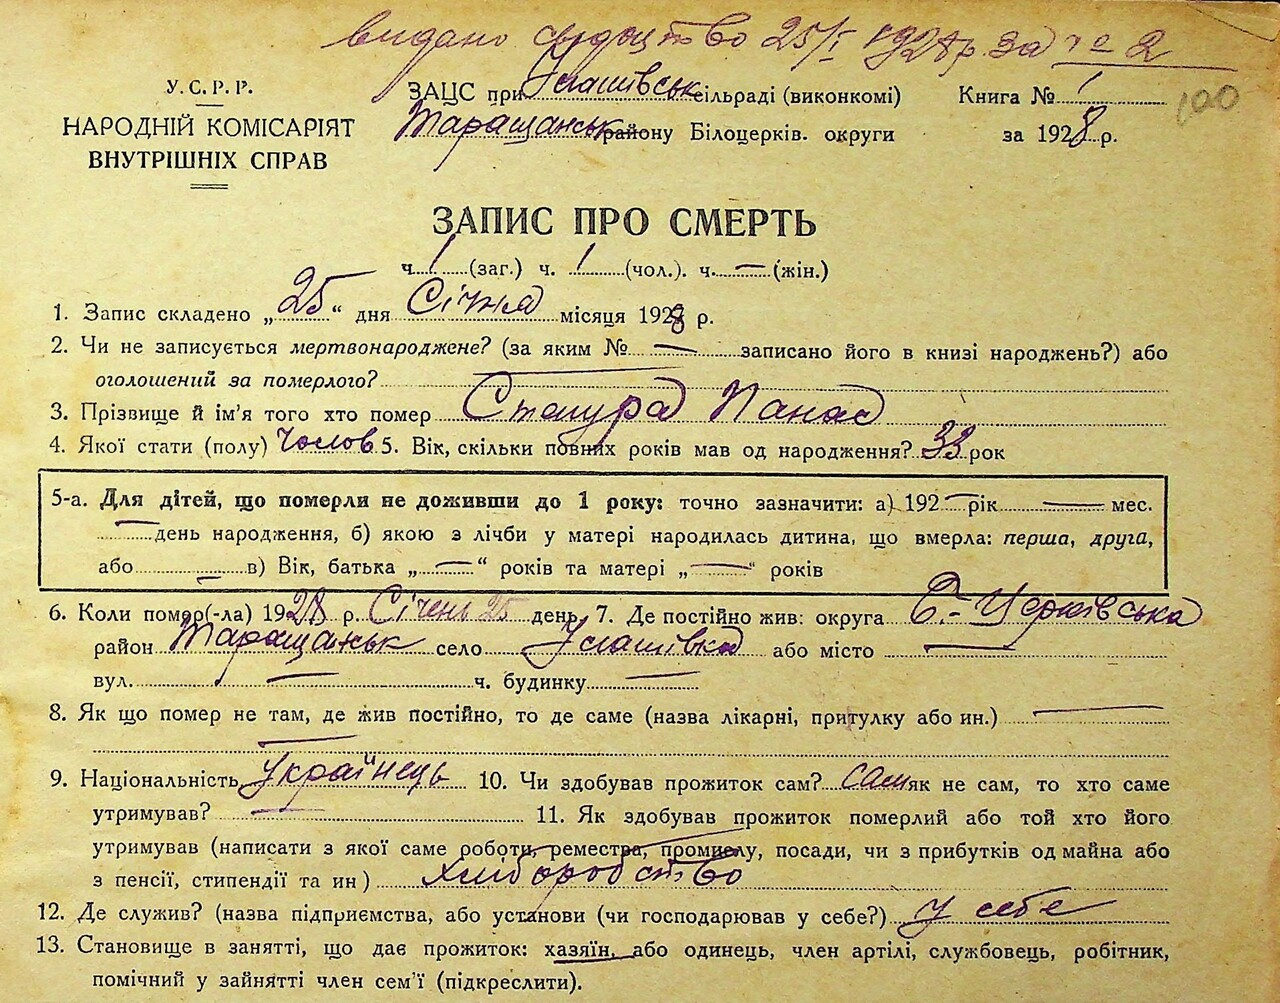 видано свідоцтво 25/I 1928 р. за № 2
У. С. Р. Р.
НАРОДНІЙ КОМІСАРІЯТ
ВНУТРІШНІХ СПРАВ
ЗАЦС при сільраді (виконкомі)
Таращанськ району Білоцерків. округи
Книга № 1
100
за 1928 р.
ЗАПИС ПРО СМЕРТЬ
ч. 1 (заг.) ч. 1 (чол.). ч. — (жін.)
1. Запис складено „ 25 “ дня Січня місяця 1928 р.
2. Чи не записується мертвонароджене? (за яким № — записано його в книзі народжень?) або
оголошений за померлого? —
3. Прізвище й ім'я того хто помер Панас
4. Якої стати (полу) Чолов 5. Вік, скільки повних років мав од народження? 33 рок
5-а. Для дітей, що померли не доживши до 1 року: точно зазначити: а) 192 — рік — мес.
— день народження, б) якою з лічби у матері народилась дитина, що вмерла: перша, друга,
або — в) Вік, батька „ — “ років та матері „ — “ років
6. Коли помер(-ла) 1928 р. Січень 25 день 7. Де постійно жив: округа Б.-Церківська
район Таращанськ село або місто —
вул. — ч. будинку —
8. Як що помер не там, де жив постійно, то де саме (назва лікарні, притулку або ин.) —
—
9. Національність Українець 10. Чи здобував прожиток сам? сам як не сам, то хто саме
утримував? — 11. Як здобував прожиток померлий або той хто його
утримував (написати з якої саме роботи, ремества, промислу, посади, чи з прибутків од майна або
з пенсії, стипендії та ин ) Хліборобство
12. Де служив? (назва підприємства, або установи (чи господарював у себе?) у себе
13. Становище в занятті, що дає прожиток: хазяїн, або одинець, член артілі, службовець, робітник,
помічний у зайнятті член сем'ї (підкреслити).